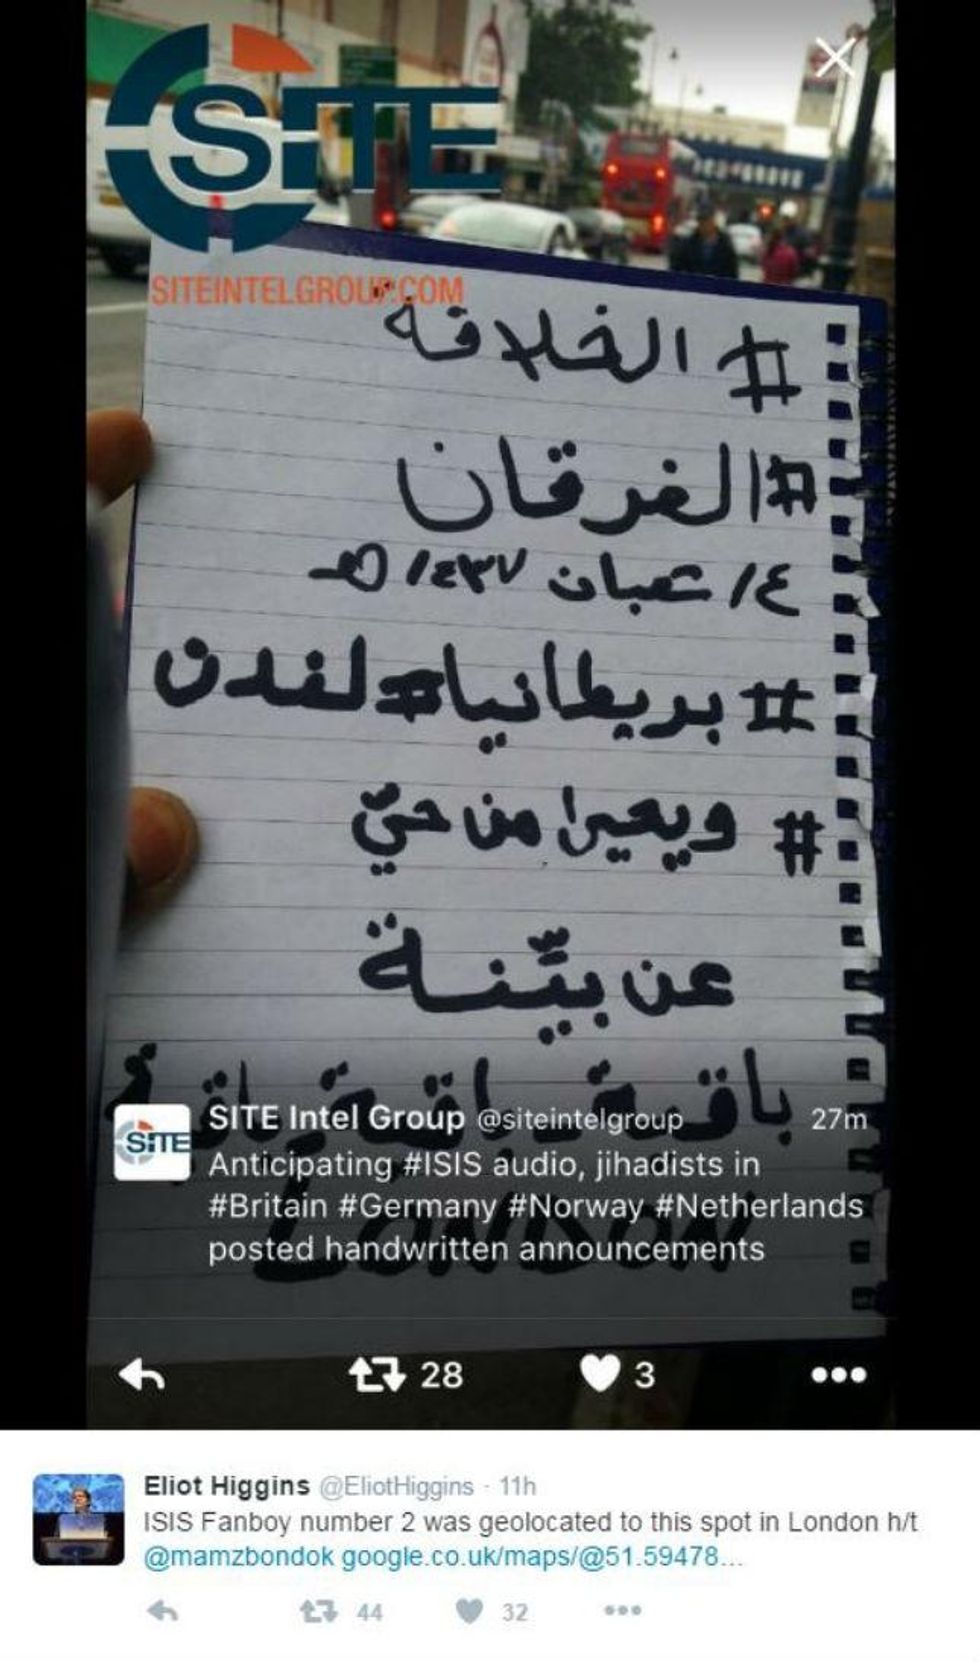 SITE
SITEINTELGROUP.COM
# الخلافة
#الفرقان
١٤ شعبان ١٤٣٧ هـ
#بريطانيا#لندن
# ويحيىٰ من حيّ
عن بيّنة
باقية باقية باقية
LONDON
SITE
SITE Intel Group @siteintelgroup 27m
Anticipating #ISIS audio, jihadists in
#Britain #Germany #Norway #Netherlands
posted handwritten announcements
28 3
Eliot Higgins @EliotHiggins · 11h
ISIS Fanboy number 2 was geolocated to this spot in London h/t
@mamzbondok google.co.uk/maps/@51.59478...
44 32